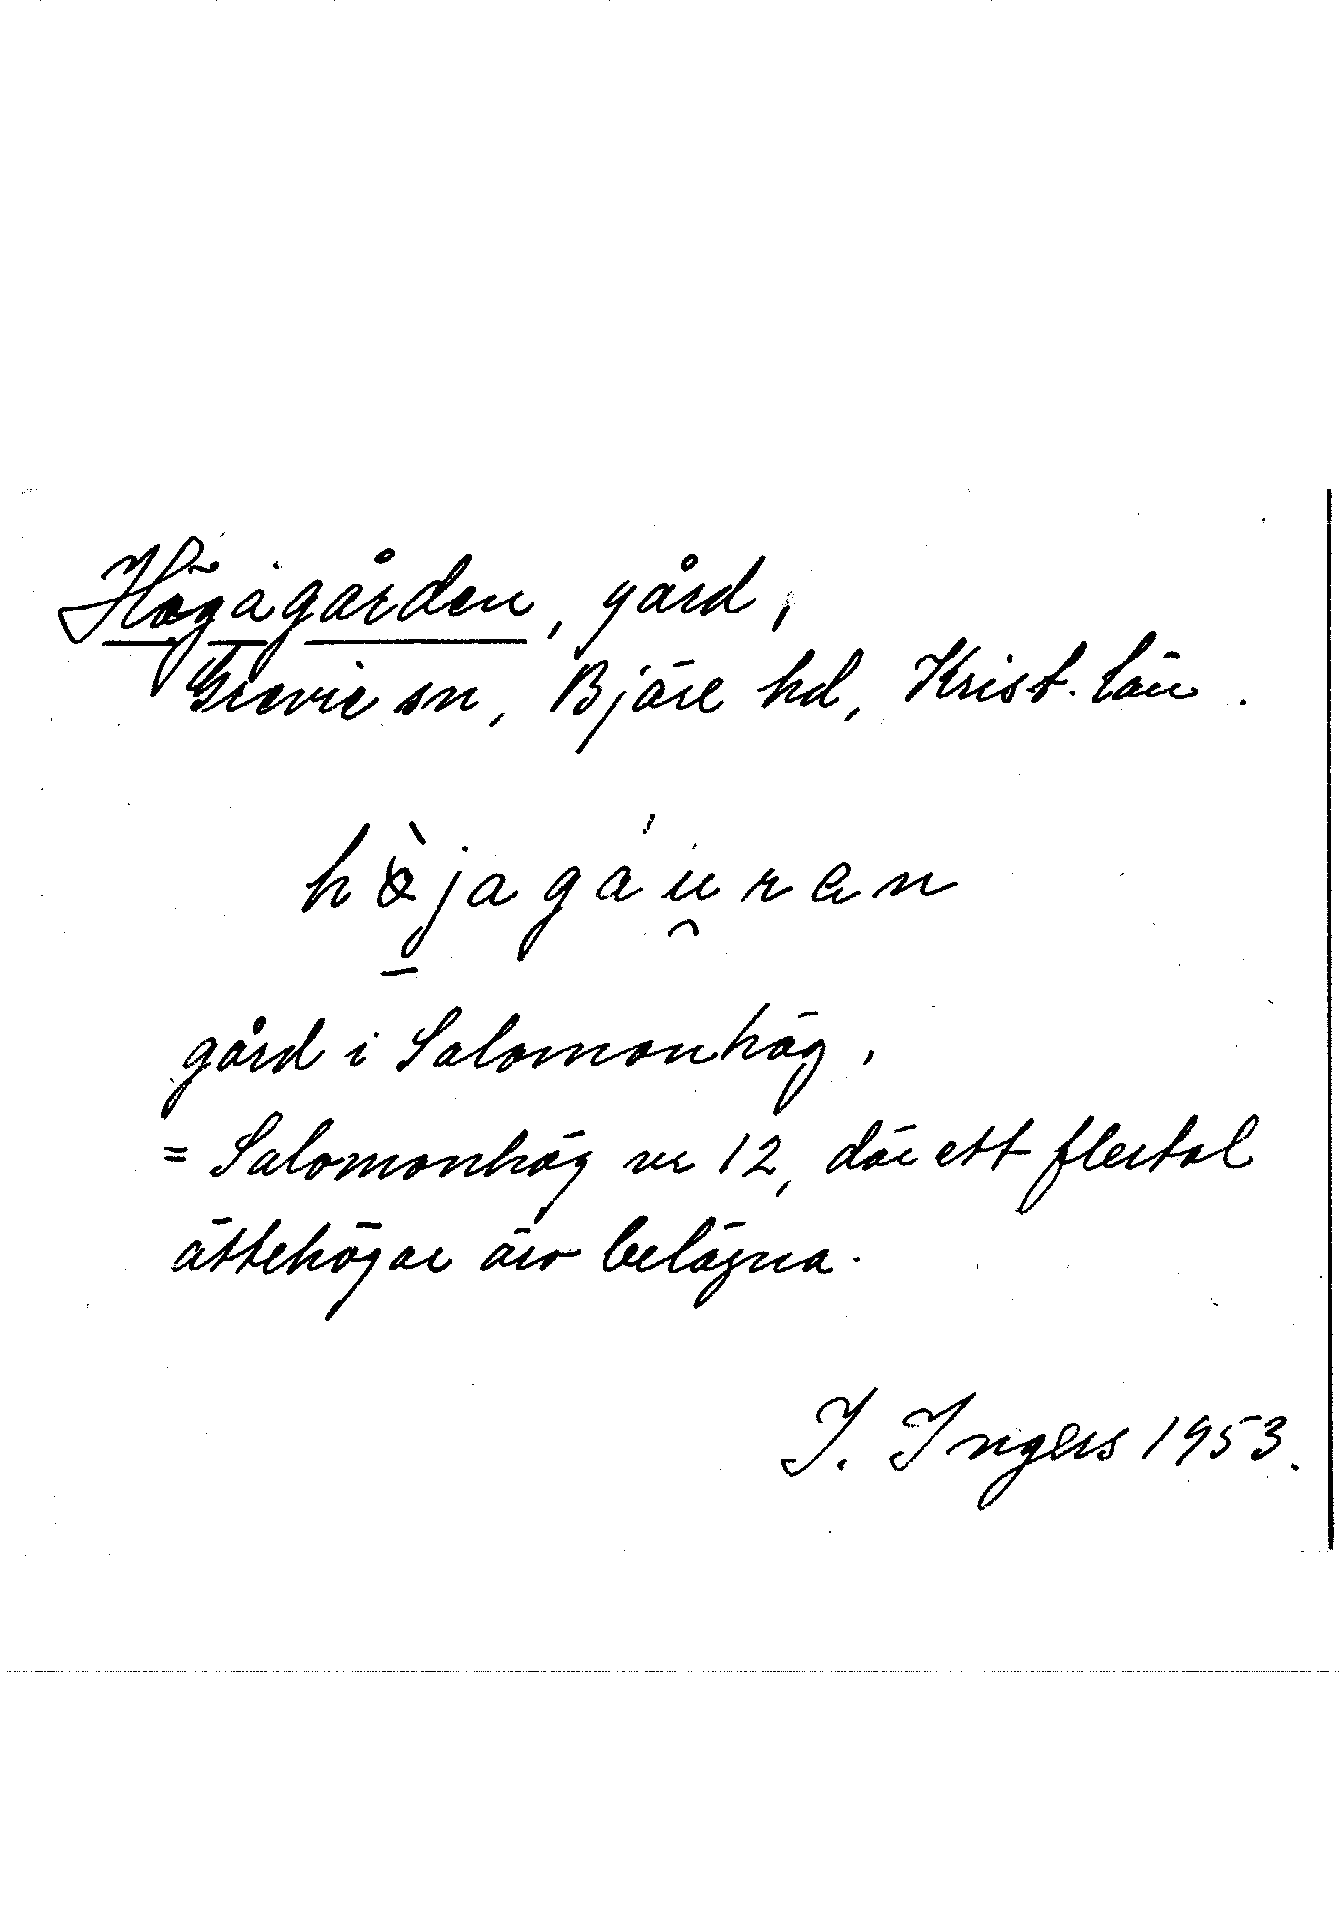 Högagården, gård,
Grevie sn, Bjäre hd, Krist. län.
hø̀jagáu̯ran
gård i Salomonhög,
= Salomonhög nr 12, där ett flertal
ättehögar äro belägna.
I. Ingers 1953.